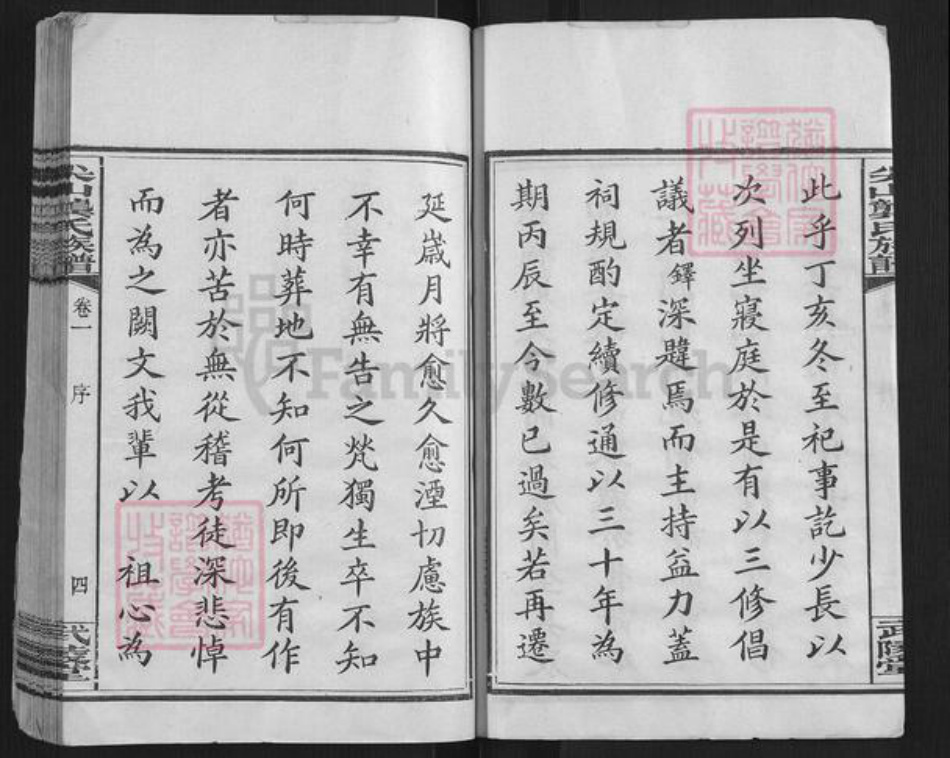 此乎丁亥冬至祀事訖少長以
次列坐寢庭於是有以三修倡
議者鐸深韙焉而主持益力蓋
祠規酌定續修通以三十年為
期丙辰至今數已過矣若再遷
延歲月將愈久愈湮切慮族中
不幸有無告之焭獨生卒不知
何時葬地不知何所即後有作
者亦苦於無從稽考徒深悲悼
而為之闕文我輩以 祖心為
尖山龔氏族譜
卷一
序
四
武陵堂
FamilySearch